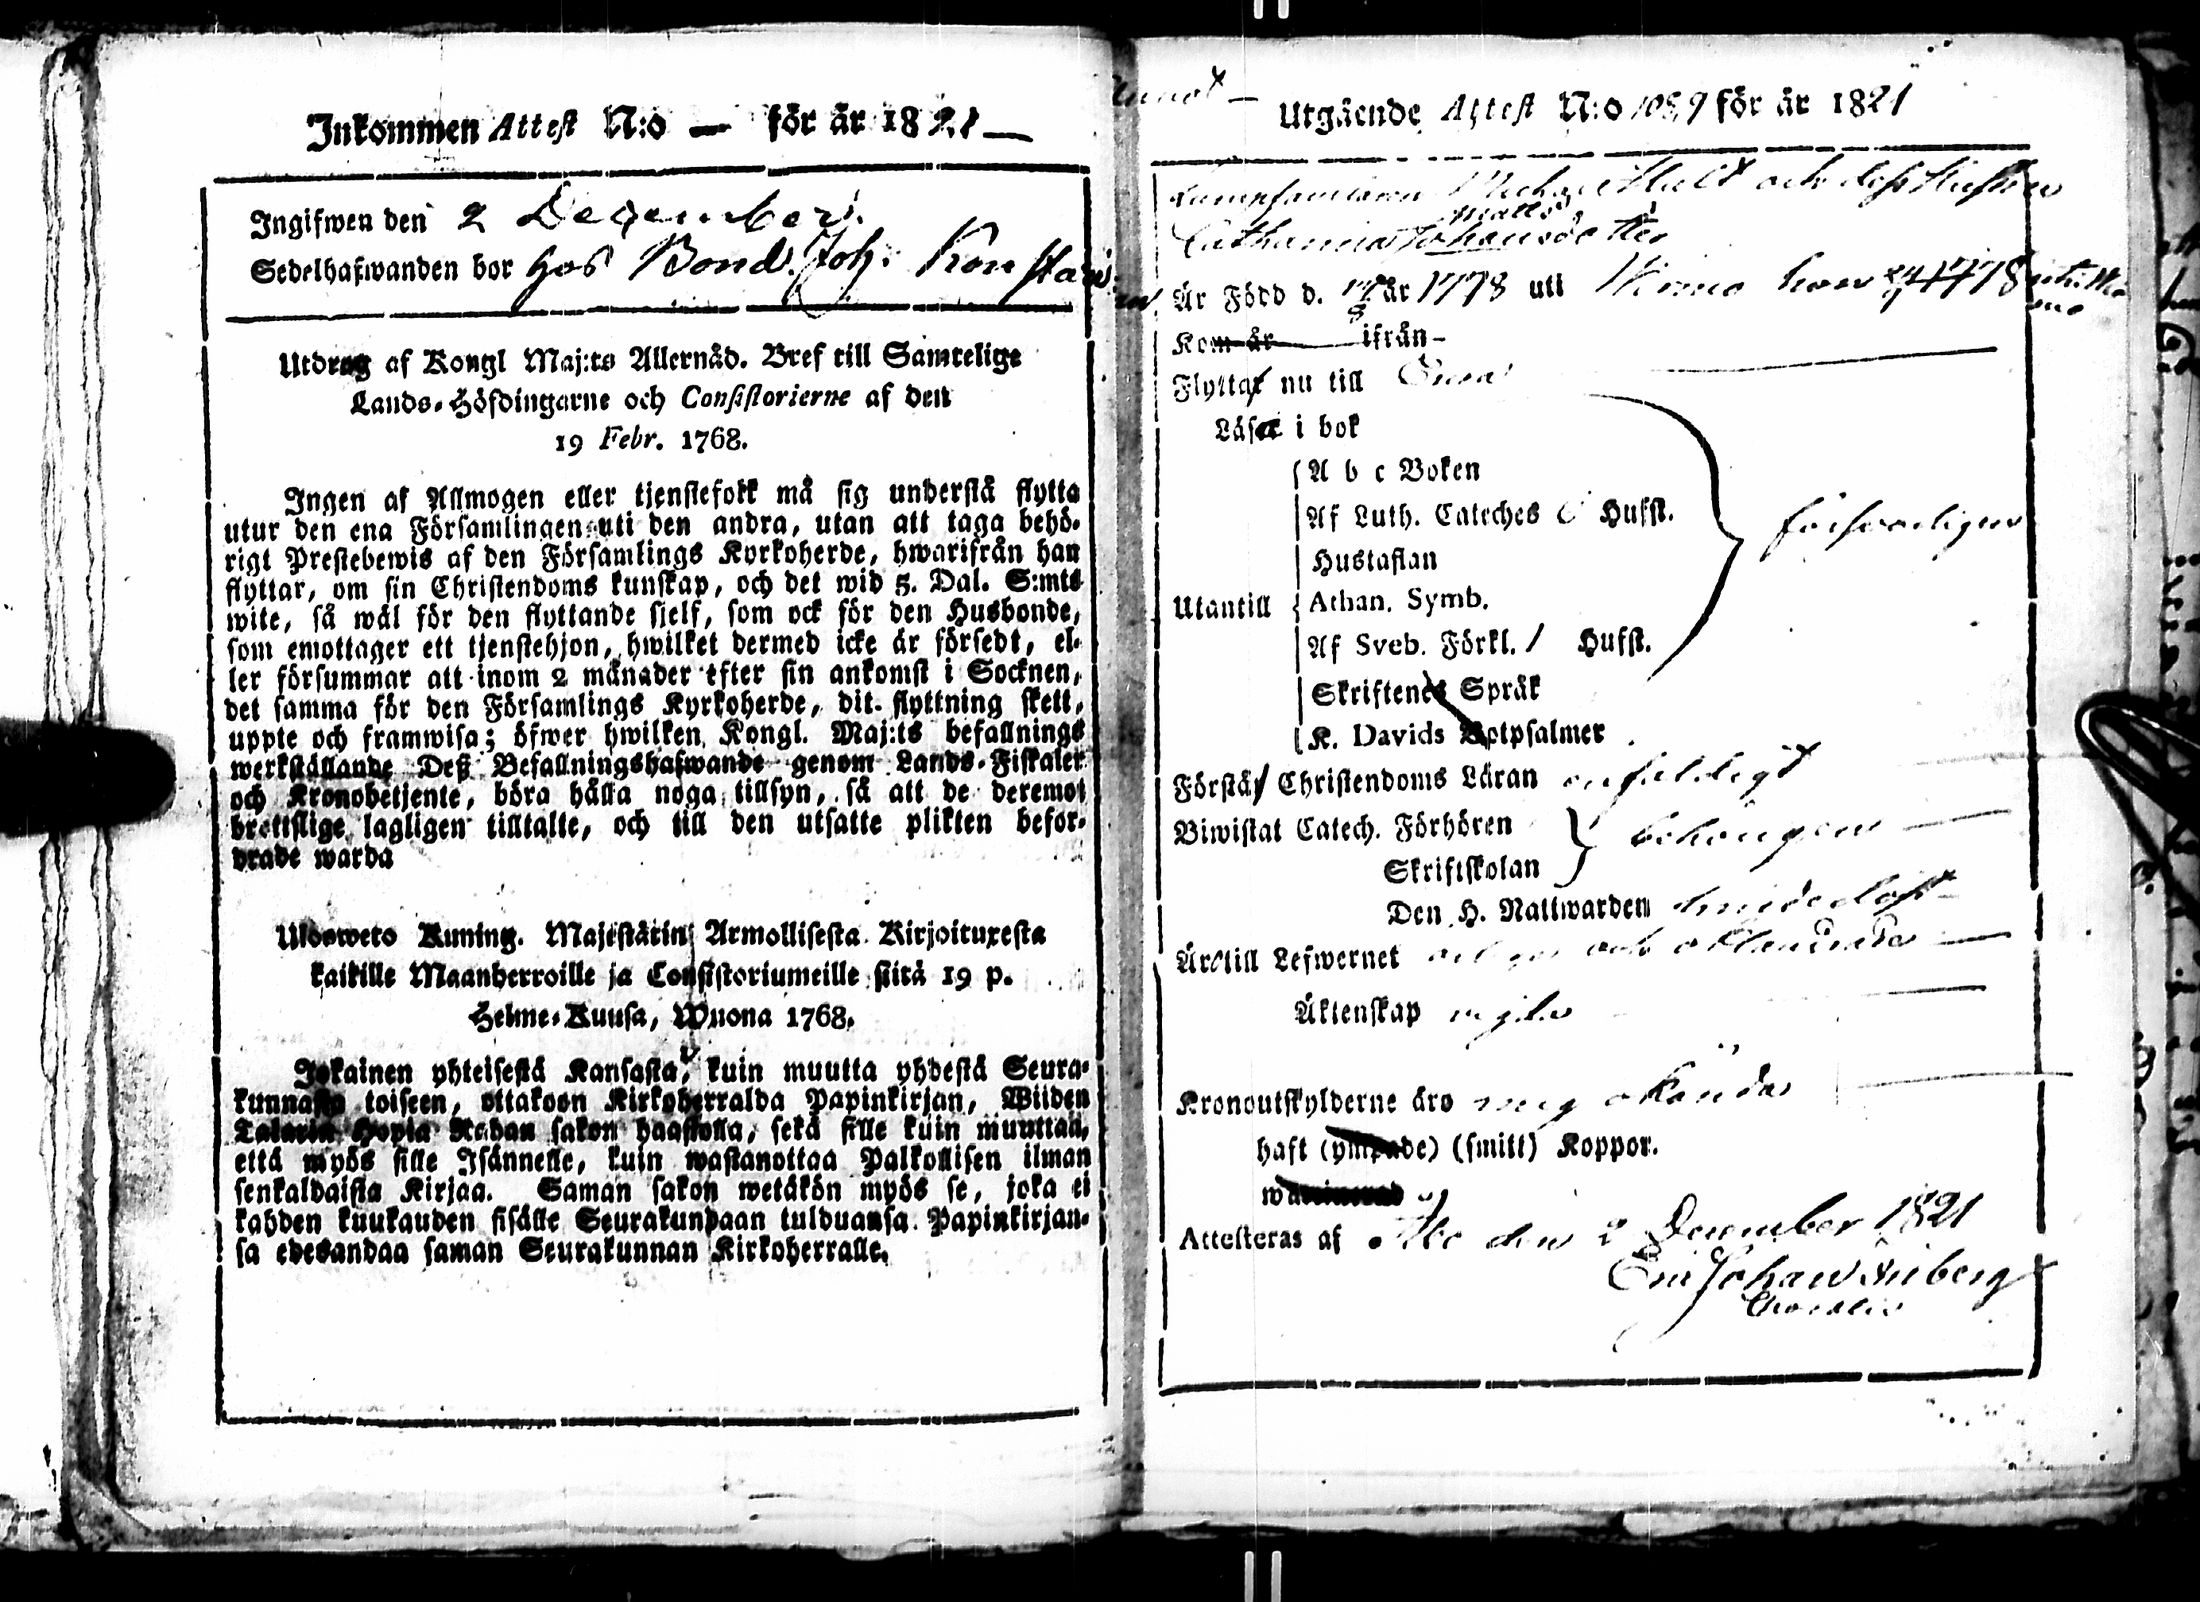 Inkommen Attest N:o — för år 1821 —
Ingifwen den 2 December.
Sedelhafwanden bor hos Bond. Joh:
Utdrag af Kongl Maj:ts Allernåd. Bref till Samtelige
Lands-Höfdingarne och Consistorierne af den
19 Febr. 1768.
Ingen af Allmogen eller tjenstefolk må sig understå flytta
utur den ena Församlingen uti den andra, utan att taga behö-
rigt Prestebewis af den Församlings Kyrkoherde, hwarifrån han
flyttar, om sin Christendoms kunskap, och det wid 5. Dal. S:mts
wite, så wäl för den flyttande sjelf, som ock för den Husbonde,
som emottager ett tjenstehjon, hwilket dermed icke är försedt, el-
ler försummar att inom 2 månader efter sin ankomst i Socknen,
det samma för den Församlings Kyrkoherde, dit flyttning skett,
uppte och framwisa; öfwer hwilken Kongl. Maj:ts befallnings
werkställande Deß Befallningshafwande genom Lands-Fiskaler
och Kronobetjente, böra hålla noga tillsyn, så att de deremot
brottslige lagligen tilltalte, och till den utsatte plikten befor-
drade warda
Ulosweto Kuning. Majestätin Armollisesta Kirjoituxesta
kaikille Maanherroille ja Consistoriumeille siitä 19 p.
Helme-Kuusa, Wuona 1768.
Jokainen yhteisestä Kansasta, kuin muutta yhdestä Seura-
kunnasta toiseen, ottakoon Kirkoherralda Papinkirjan, Wiiden
Talarin Hopia Rahan sakon haastolla, sekä sille kuin muuttaa,
että myös sille Isännelle, kuin wastanottaa Palkollisen ilman
senkaldaista Kirjaa. Saman sakon wetäkön myös se, joka ei
kahden kuukauden sisälle Seurakundaan tulduansa Papinkirjan-
sa edesandaa saman Seurakunnan Kirkoherralle.
Utgående Attest N:o 1059 för år 1821
Michael och dess Hustru
Catharina Johansdotter
Är Född d. år 1778 uti hon 1778
Kom år ifrån —
Flyttar nu till
Läser i bok
A b c Boken
Af Luth. Cateches 6 Hufst.
Hustaflan
Utantill Athan. Symb.
Af Sveb. Förkl. / Hufst.
Skriftenes Språk
K. Davids Botpsalmer
försvarligen
Förstår Christendoms Läran enfaldigt
Biwistat Catech. Förhören
Skriftskolan
behörigen
Den H. Nattwarden
Äro till Lefwernet och oklandrade
Äktenskap
Kronoutskylderne äro mig okända
haft (ympade) (smitt) Koppor.
Attesteras af Åbo den 2 December 1821
Johan